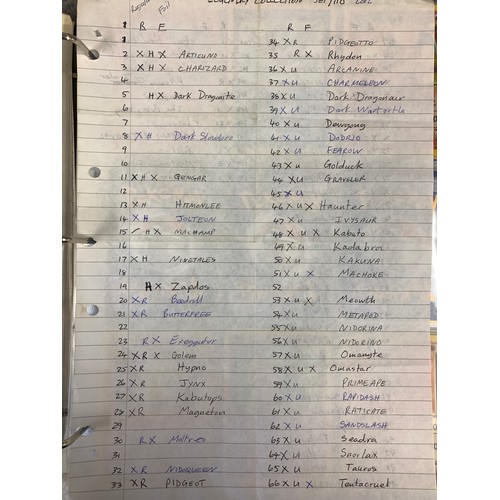 LEGENDARY COLLECTION SET/110 2002
Regular Foil
# R F
1
2 X H X ARTICUNO
3 X H X CHARIZARD
4
5 H X Dark Dragonite
6
7
8 X H Dark Slowbro
9
10
11 X H X GENGAR
12
13 X H HITMONLEE
14 X H JOLTEON
15 / H X MACHAMP
16
17 X H NINETALES
18
19 H X Zapdos
20 X R Beedrill
21 X R BUTTERFREE
22
23 R X Exeggutor
24 X R X Golem
25 X R Hypno
26 X R JYNX
27 X R Kabutops
28 X R Magneton
29
30 R X Moltres
31
32 X R NIDOQUEEN
33 X R PIDGEOT
R F
34 X R PIDGEOTTO
35 R X Rhydon
36 X U ARCANINE
37 X U CHARMELEON
38 X U Dark Dragonair
39 X U Dark Wartortle
40 X U Dewgong
41 X U DODRIO
42 X U FEAROW
43 X U Golduck
44 X U GRAVELER
45 X U
46 X U X Haunter
47 X U IVYSAUR
48 X U X Kabuto
49 X U Kadabra
50 X U KAKUNA
51 X U X MACHOKE
52
53 X U X Meowth
54 X U METAPOD
55 X U NIDORINA
56 X U NIDORINO
57 X U Omanyte
58 X U X Omastar
59 X U PRIMEAPE
60 X U RAPIDASH
61 X U RATICATE
62 X U SANDSLASH
63 X U Seadra
64 X U Snorlax
65 X U Tauros
66 X U X Tentacruel